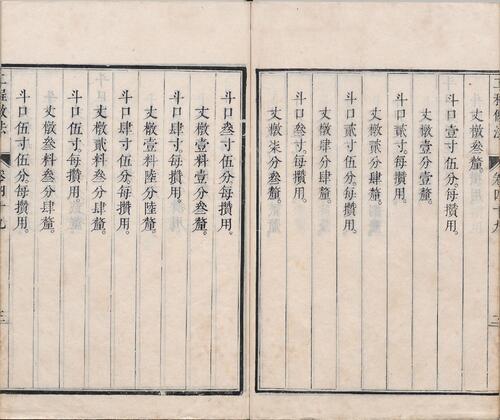 丈橔叁釐。
斗口壹寸伍分。每攢用。
丈橔壹分壹釐。
斗口貳寸。每攢用。
丈橔貳分肆釐。
斗口貳寸伍分。每攢用。
丈橔肆分肆釐。
斗口叁寸。每攢用。
丈橔柒分叁釐。
斗口叁寸伍分。每攢用。
丈橔壹料壹分叁釐。
斗口肆寸。每攢用。
丈橔壹料陸分陸釐。
斗口肆寸伍分。每攢用。
丈橔貳料叁分肆釐。
斗口伍寸。每攢用。
丈橔叁料叁分肆釐。
斗口伍寸伍分。每攢用。